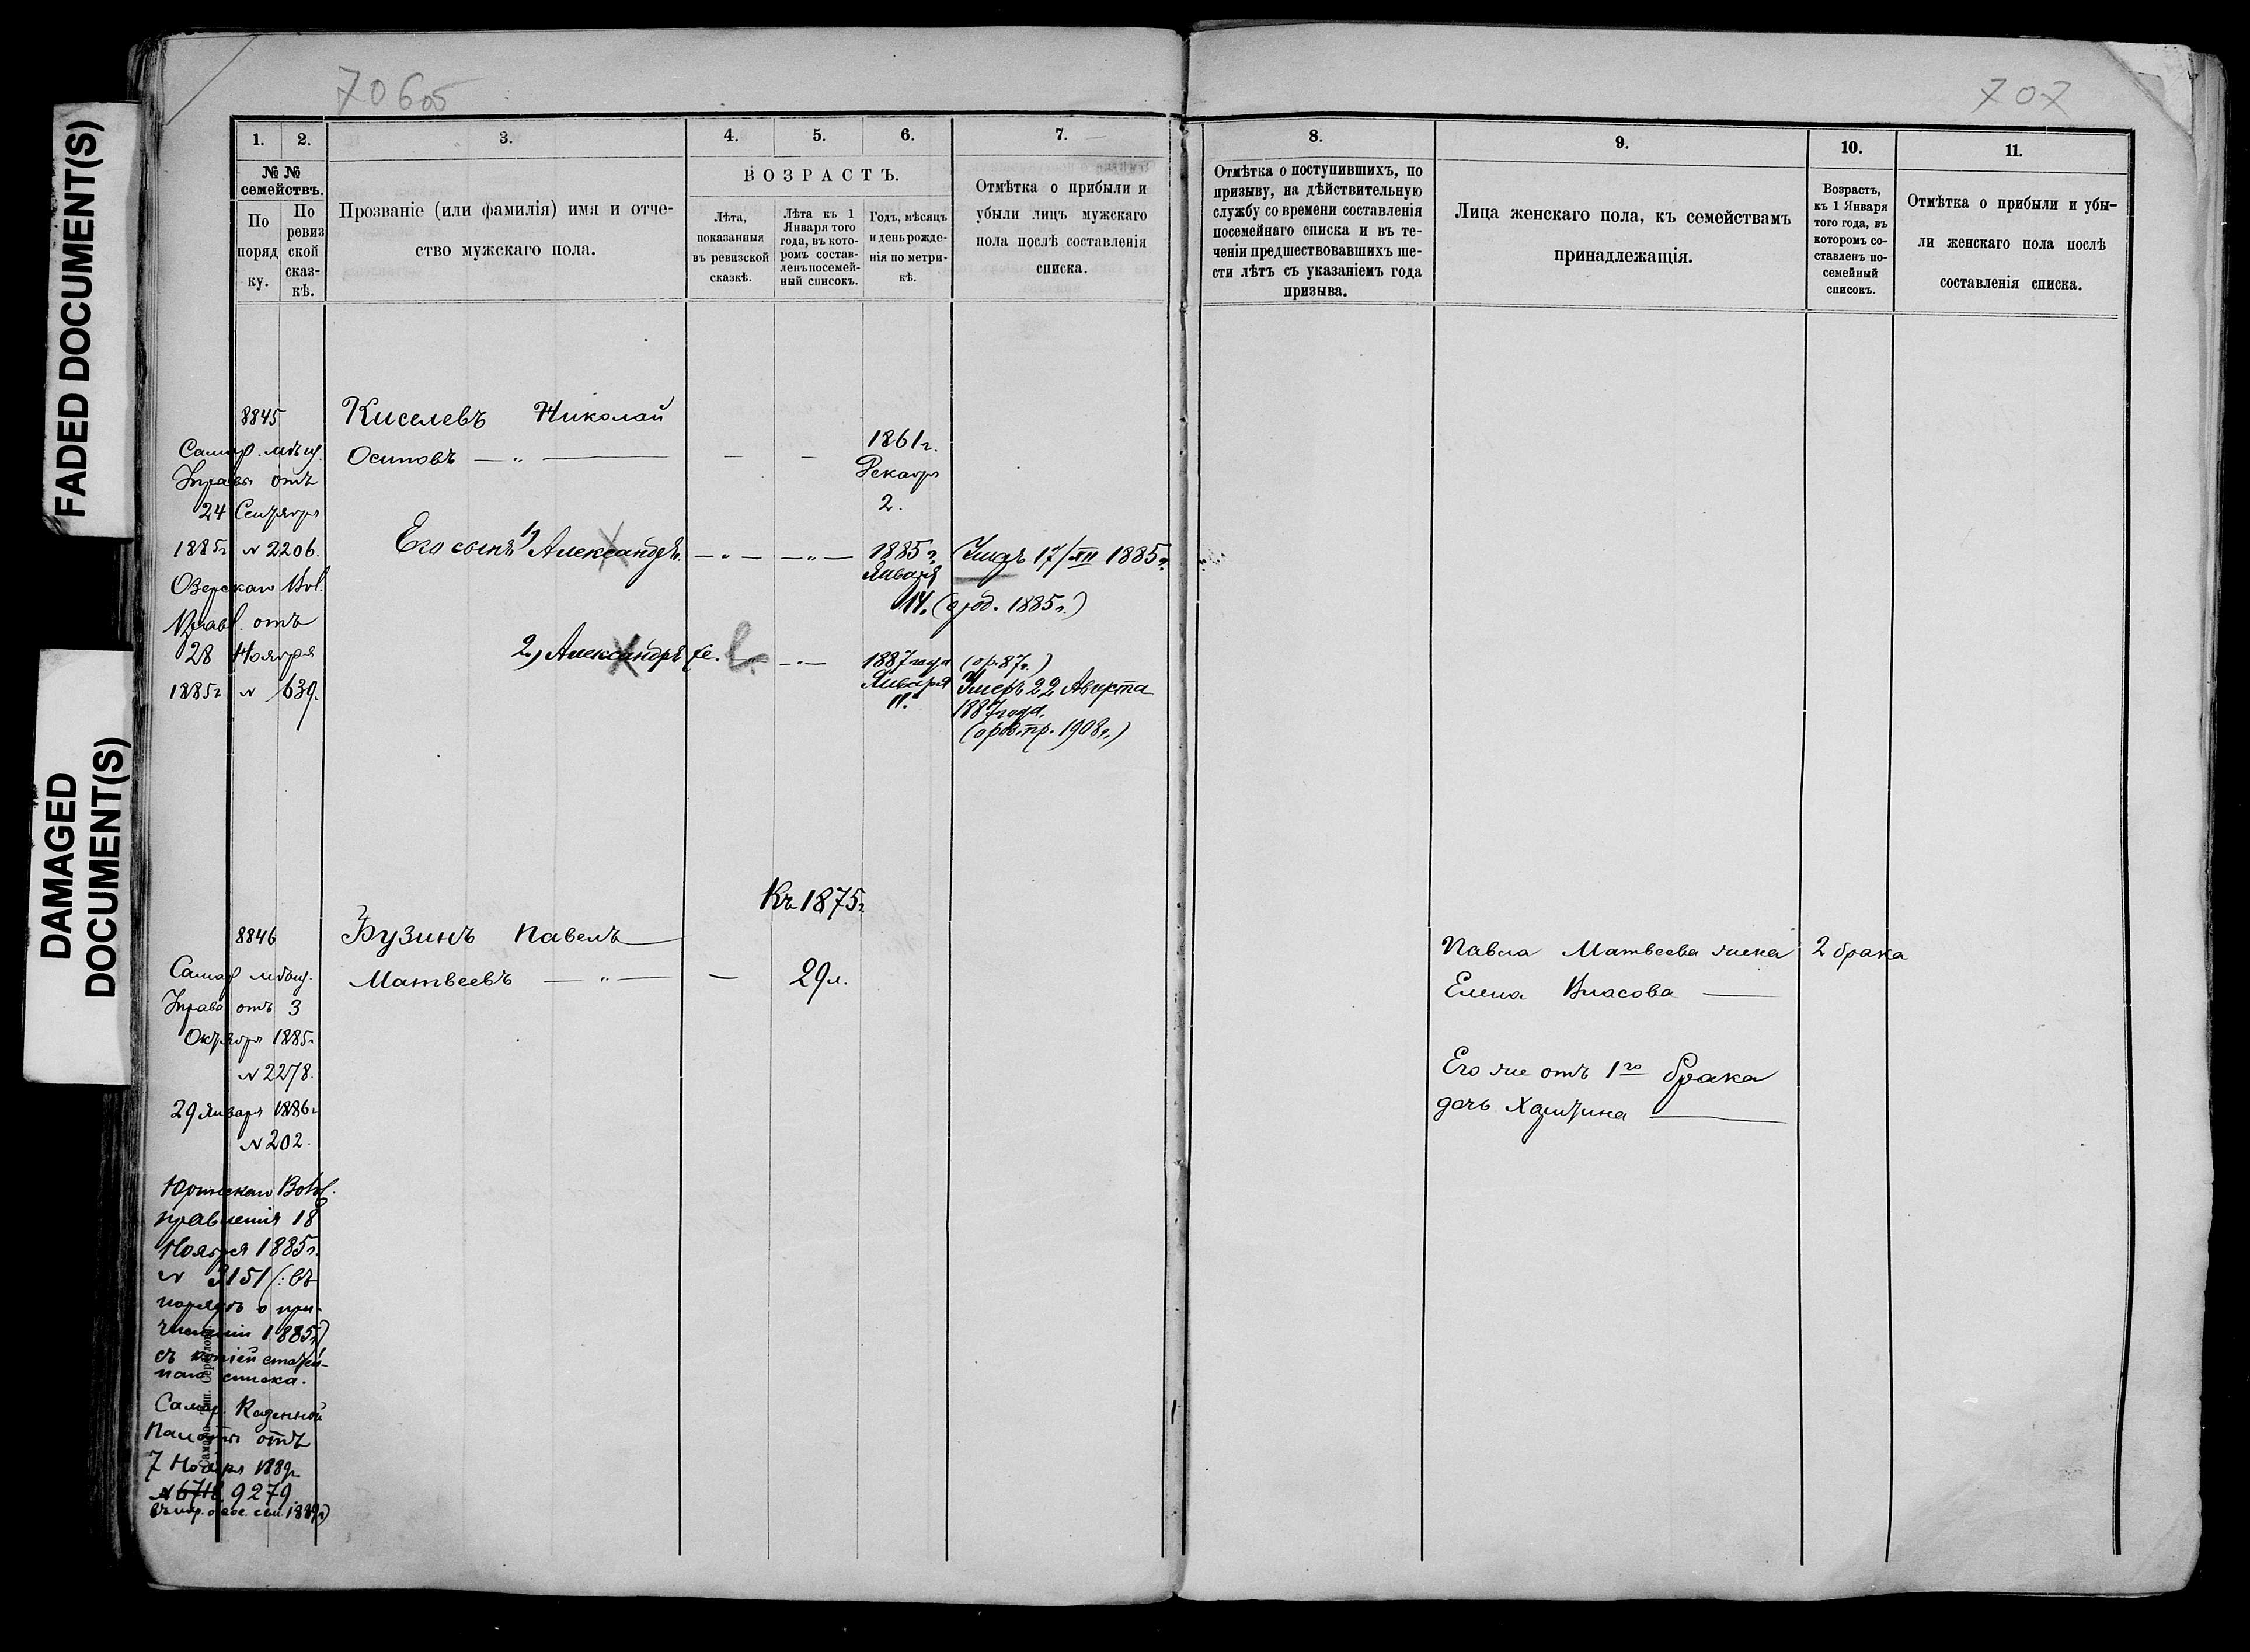 FADED DOCUMENT(S)
DAMAGED
DOCUMENT(S)
706об
707
1.
2.
3.
4.
5.
6.
7.
№ №
семействъ.
По
поряд
ку.
По
ревиз
ской
сказ-
кѣ.
Прозваніе (или фамилія) имя и отче-
ство мужскаго пола.
ВОЗРАСТЪ.
Лѣта,
показанныя
въ ревизской
сказкѣ.
Лѣта къ 1
Января того
года, въ кото-
ромъ состав-
ленъ посемей-
ный списокъ.
Годъ, мѣсяцъ
и день рожде-
нія по метри-
кѣ.
Отмѣтка о прибыли и
убыли лицъ мужскаго
пола послѣ составленія
списка.
8.
9.
10.
11.
Отмѣтка о поступившихъ, по
призыву, на дѣйствительную
службу со времени составленія
посемейнаго списка и въ те-
ченіи предшествовавшихъ ше-
сти лѣтъ съ указаніемъ года
призыва.
Лица женскаго пола, къ семействамъ
принадлежащія.
Возрастъ,
къ 1 Января
того года, въ
которомъ со-
ставленъ по-
семейный
списокъ.
Отмѣтка о прибыли и убы-
ли женскаго пола послѣ
составленія списка.
8845
Самар. мѣщ.
Управы отъ
24 Сентября
1885г № 2206.
Озерскаго Вол.
Правл. отъ
28 Ноября
1885г № 639.
Киселевъ Николай
Осиповъ — " —
— —
1861г.
Декабря
2.
Его сынъ 1) Александръ.
— " — — " —
1885г.
Января
14.
17/XII 1885г.
(о род. 1885г.)
2.) Александръ
— " —
1887 года
Января
11.
(ор. 87г.)
Умеръ 22 Августа
1887 года.
1908г.)
Къ 1875г
8846
Самар мѣщ.
Управы отъ 3
Октября 1885г
№ 2278.
29 Января 1886г
№ 202.
Волос.
правленія 18
Ноября 1885г.
№ 3151 (: въ
нарядѣ о при-
численіи 1885г)
съ копіей
списка.
Самар. Казенной
Палаты отъ
7 Ноября 1889г
№ 9279.
Бузинъ Павелъ —
Матвеевъ — " —
—
29 л.
Павла Матвеева жена
Елена Власова —
2 брака
Его же отъ 1го брака
дочь —
Самара. Тип.